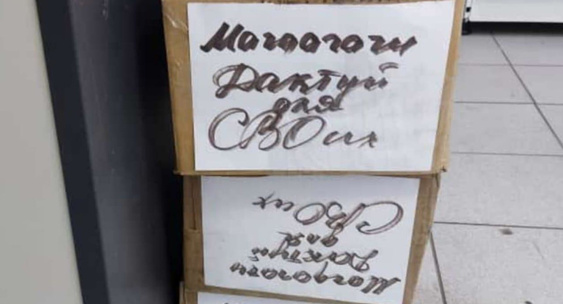 Магдагачи
Дактуй
для
СВОих
Магдагачи
Дактуй
для
СВОих